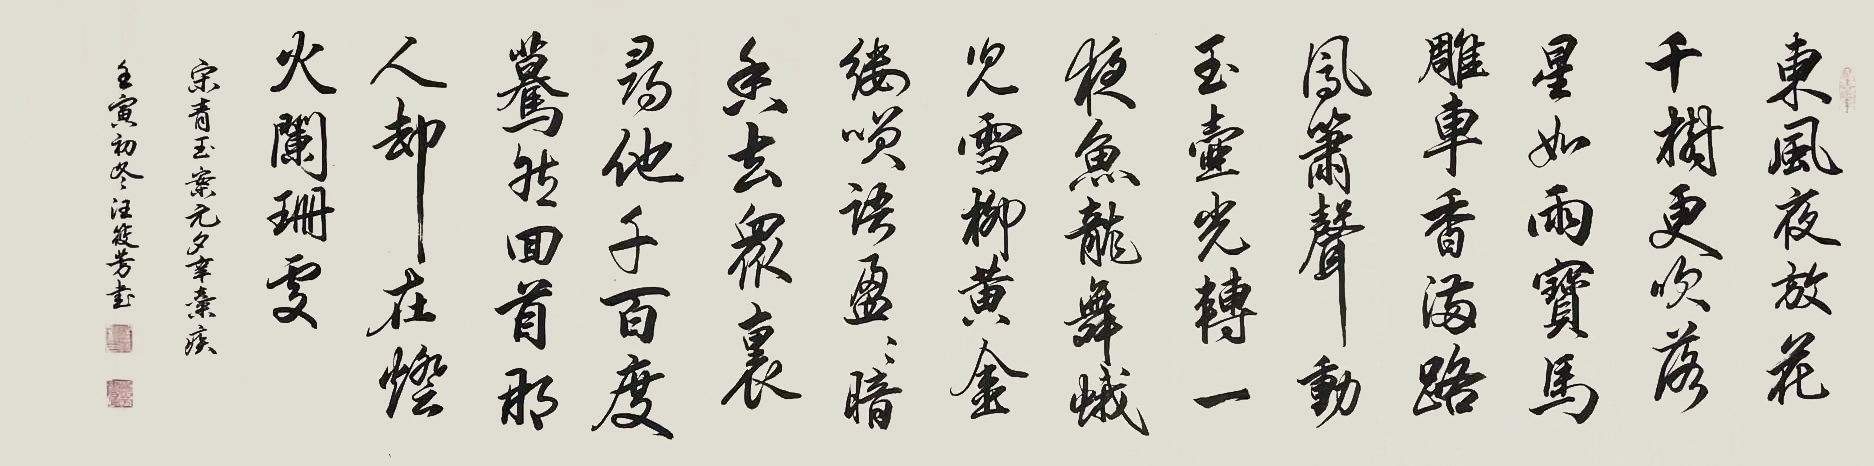 東風夜放花
千樹更吹落
星如雨寶馬
雕車香滿路
鳳簫聲動
玉壺光轉一
夜魚龍舞蛾
兒雪柳黃金
縷咲語盈〻暗
香去眾裏
尋他千百度
驀然回首那
人却在燈
火闌珊處
宋青玉案元夕辛棄疾
壬寅初冬汪筱芳書